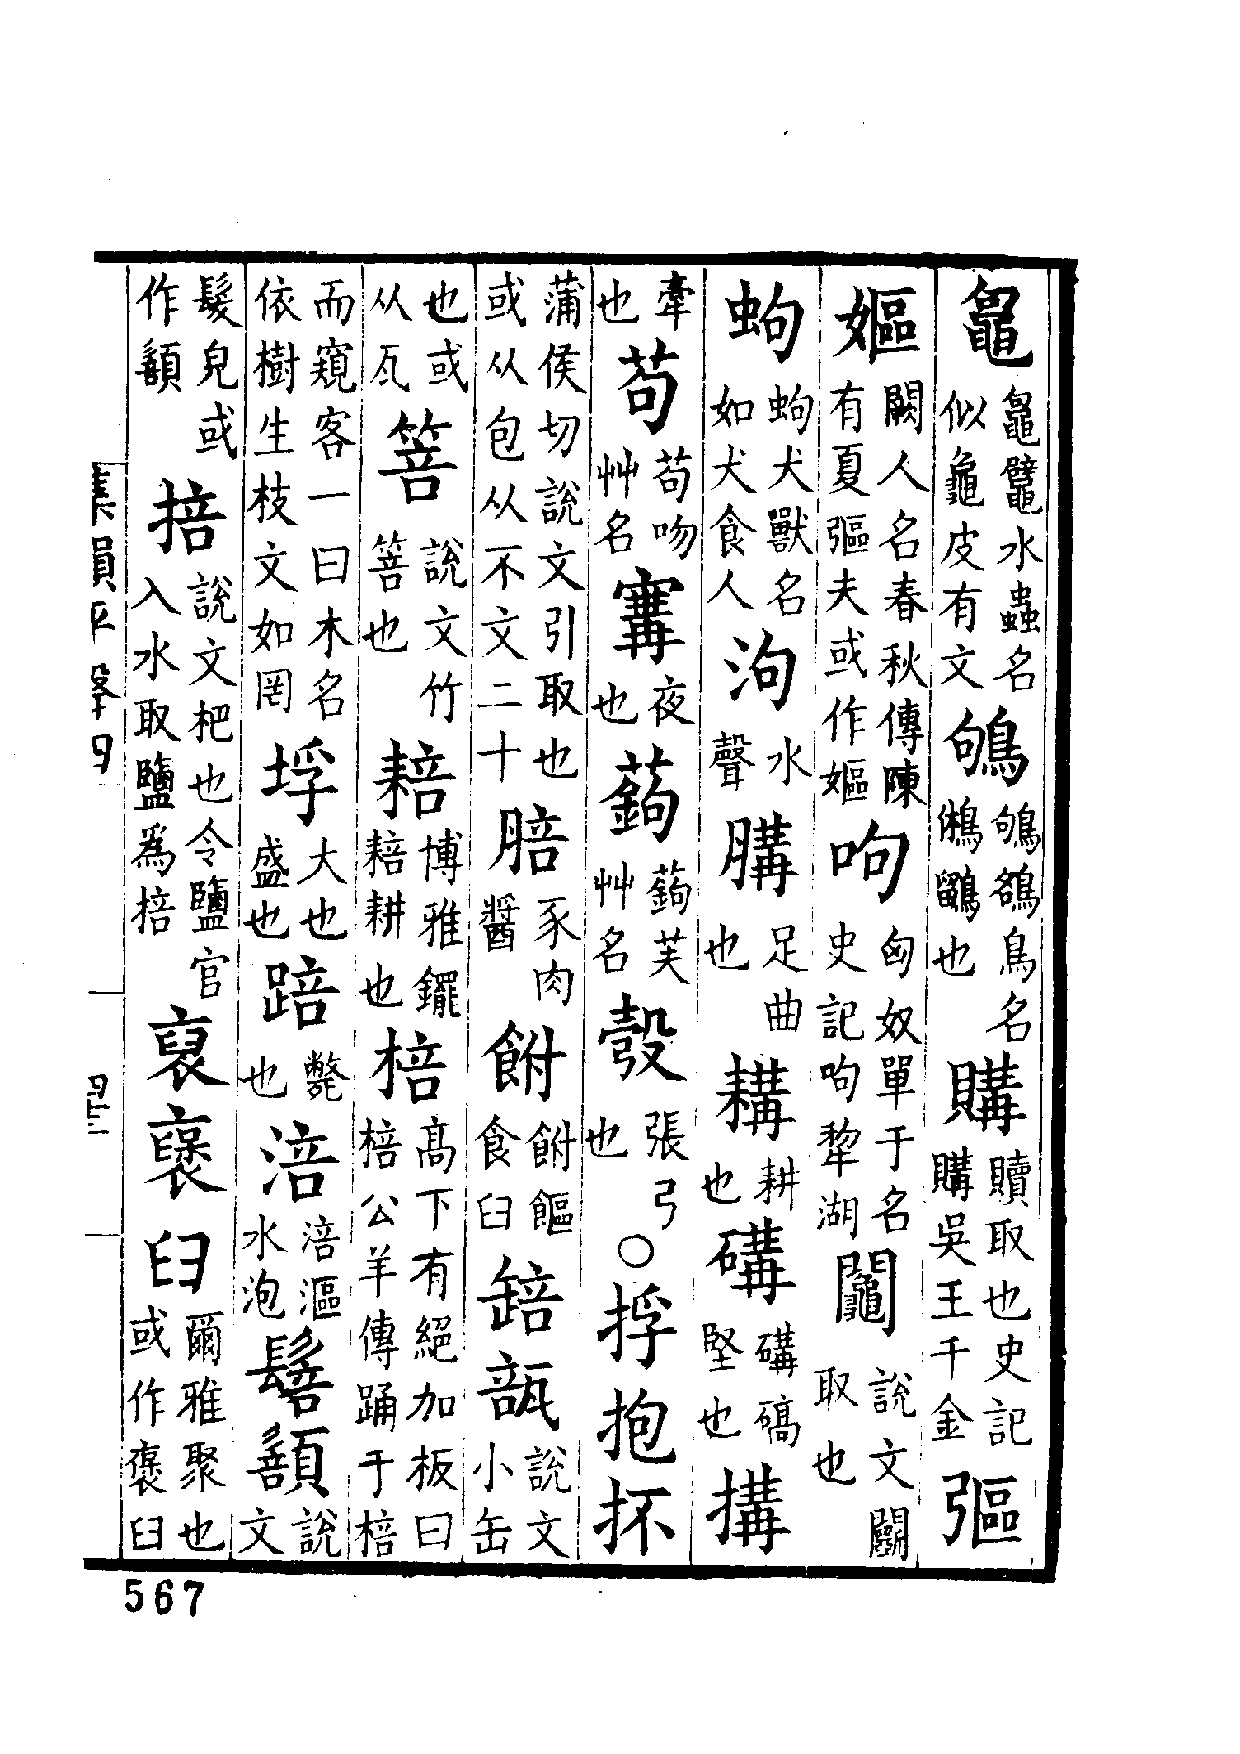 鼅鼅鼊水蟲名似龜皮有文鴝鴝鵒鳥名鵂鶹也購贖取也史記購吳王千金彄
嫗闕人名春秋傳陳有夏彄夫或作嫗呴匈奴單于名史記呴犂湖鬮說文鬭取也
蚼蚼犬獸名如犬食人泃水聲䐟足曲也耩耕也㗕堅也搆
牽也苟苟吻艸名冓夜也蒟蒟芙艸名彀張弓也〇捊抱抔
蒲侯切說文引取也或从包从不文二十䏽豕肉醬䬏䬏饇食臼䍌瓿說文小缶
也或从瓦箁說文竹箁也䎧博雅䥯䎧耕也棓高下有絕加板曰棓公羊傳踊于棓
而窺客一曰木名依樹生枝文如罔垺大也盛也踣斃也涪涪漚水泡䯽䫠說文
髮皃或作䫠掊說文杷也令鹽官入水取鹽為掊裒襃臼爾雅聚也或作襃臼
集韻平聲四
567